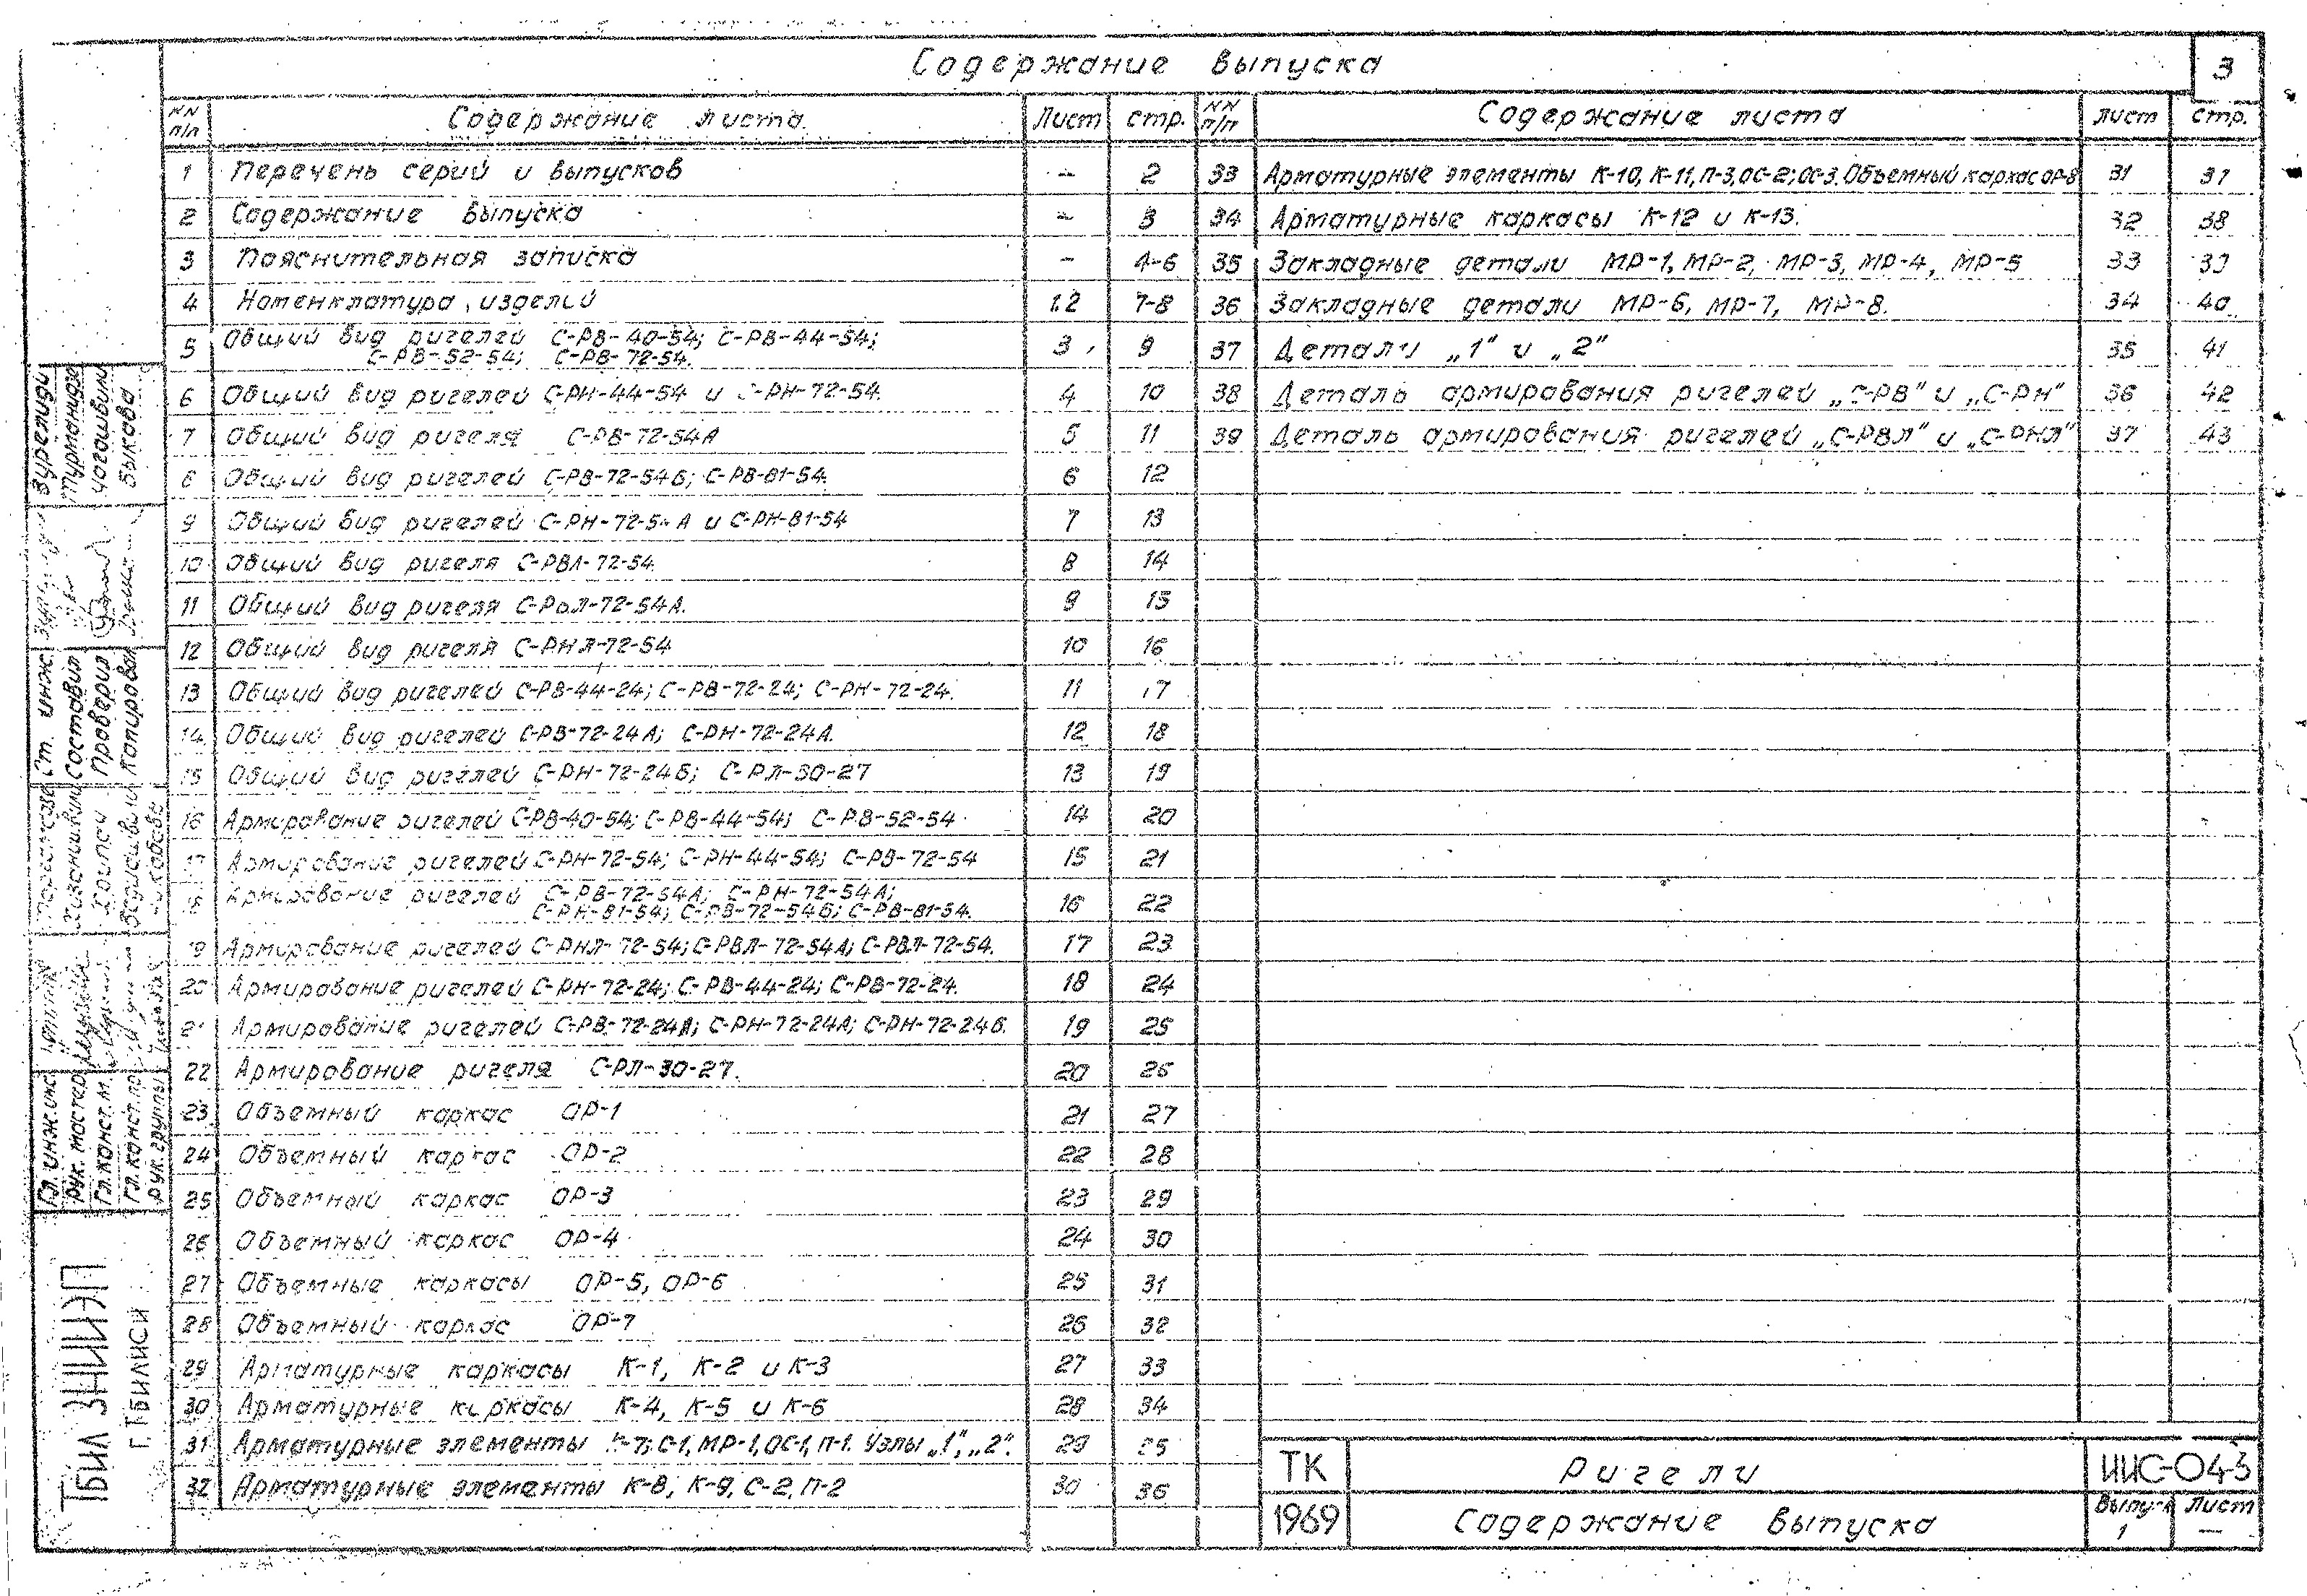 Содержание выпуска
3
NN п/п Содержание листа Лист стр.
1 Перечень серий и выпусков — 2
2 Содержание выпуска — 3
3 Пояснительная записка — 4-6
4 Номенклатура изделий 1.2 7-8
5 Общий вид ригелей С-РВ-40-54; С-РВ-44-54;
С-РВ-52-54; С-РВ-72-54. 3 9
6 Общий вид ригелей С-РН-44-54 и С-РН-72-54. 4 10
7 Общий вид ригеля С-РВ-72-54А 5 11
8 Общий вид ригелей С-РВ-72-54Б; С-РВ-81-54. 6 12
9 Общий вид ригелей С-РН-72-54А и С-РН-81-54 7 13
10 Общий вид ригеля С-РВЛ-72-54. 8 14
11 Общий вид ригеля С-РВЛ-72-54А. 9 15
12 Общий вид ригеля С-РНЛ-72-54 10 16
13 Общий вид ригелей С-РВ-44-24; С-РВ-72-24; С-РН-72-24. 11 17
14 Общий вид ригелей С-РВ-72-24А; С-РН-72-24А. 12 18
15 Общий вид ригелей С-РН-72-24Б; С-РЛ-30-27 13 19
16 Армирование ригелей С-РВ-40-54; С-РВ-44-54; С-РВ-52-54 14 20
17 Армирование ригелей С-РН-72-54; С-РН-44-54; С-РВ-72-54 15 21
18 Армирование ригелей С-РВ-72-54А; С-РН-72-54А;
С-РН-81-54; С-РВ-72-54Б; С-РВ-81-54. 16 22
19 Армирование ригелей С-РНЛ-72-54; С-РВЛ-72-54А; С-РВЛ-72-54. 17 23
20 Армирование ригелей С-РН-72-24; С-РВ-44-24; С-РВ-72-24. 18 24
21 Армирование ригелей С-РВ-72-24А; С-РН-72-24А; С-РН-72-24Б. 19 25
22 Армирование ригеля С-РЛ-30-27. 20 26
23 Объемный каркас ОР-1 21 27
24 Объемный каркас ОР-2 22 28
25 Объемный каркас ОР-3 23 29
26 Объемный каркас ОР-4 24 30
27 Объемные каркасы ОР-5, ОР-6 25 31
28 Объемный каркас ОР-7 26 32
29 Арматурные каркасы К-1, К-2 и К-3 27 33
30 Арматурные каркасы К-4, К-5 и К-6 28 34
31 Арматурные элементы К-7; С-1, МР-1, ОС-1, П-1. Узлы „1“, „2“. 29 35
32 Арматурные элементы К-8, К-9, С-2, П-2 30 36
NN п/п Содержание листа лист стр.
33 Арматурные элементы К-10, К-11, П-3, ОС-2; ОС-3. Объемный каркас ОР-8 31 37
34 Арматурные каркасы К-12 и К-13. 32 38
35 Закладные детали МР-1, МР-2, МР-3, МР-4, МР-5 33 39
36 Закладные детали МР-6, МР-7, МР-8. 34 40
37 Детали „1“ и „2“ 35 41
38 Деталь армирования ригелей „С-РВ“ и „С-РН“ 36 42
39 Деталь армирования ригелей „С-РВЛ“ и „С-РНЛ“ 37 43
ТК Ригели ИИС-04-3
1969 Содержание выпуска Выпуск Лист
1 —
Ст. инж.
Составил
Проверил
Копировал
Быкова
Гл. инж. инс.
Рук. мастер.
Гл. конст. м.
Гл. конст. пр.
Рук. группы
Тбил ЗНИИЭП
г. Тбилиси